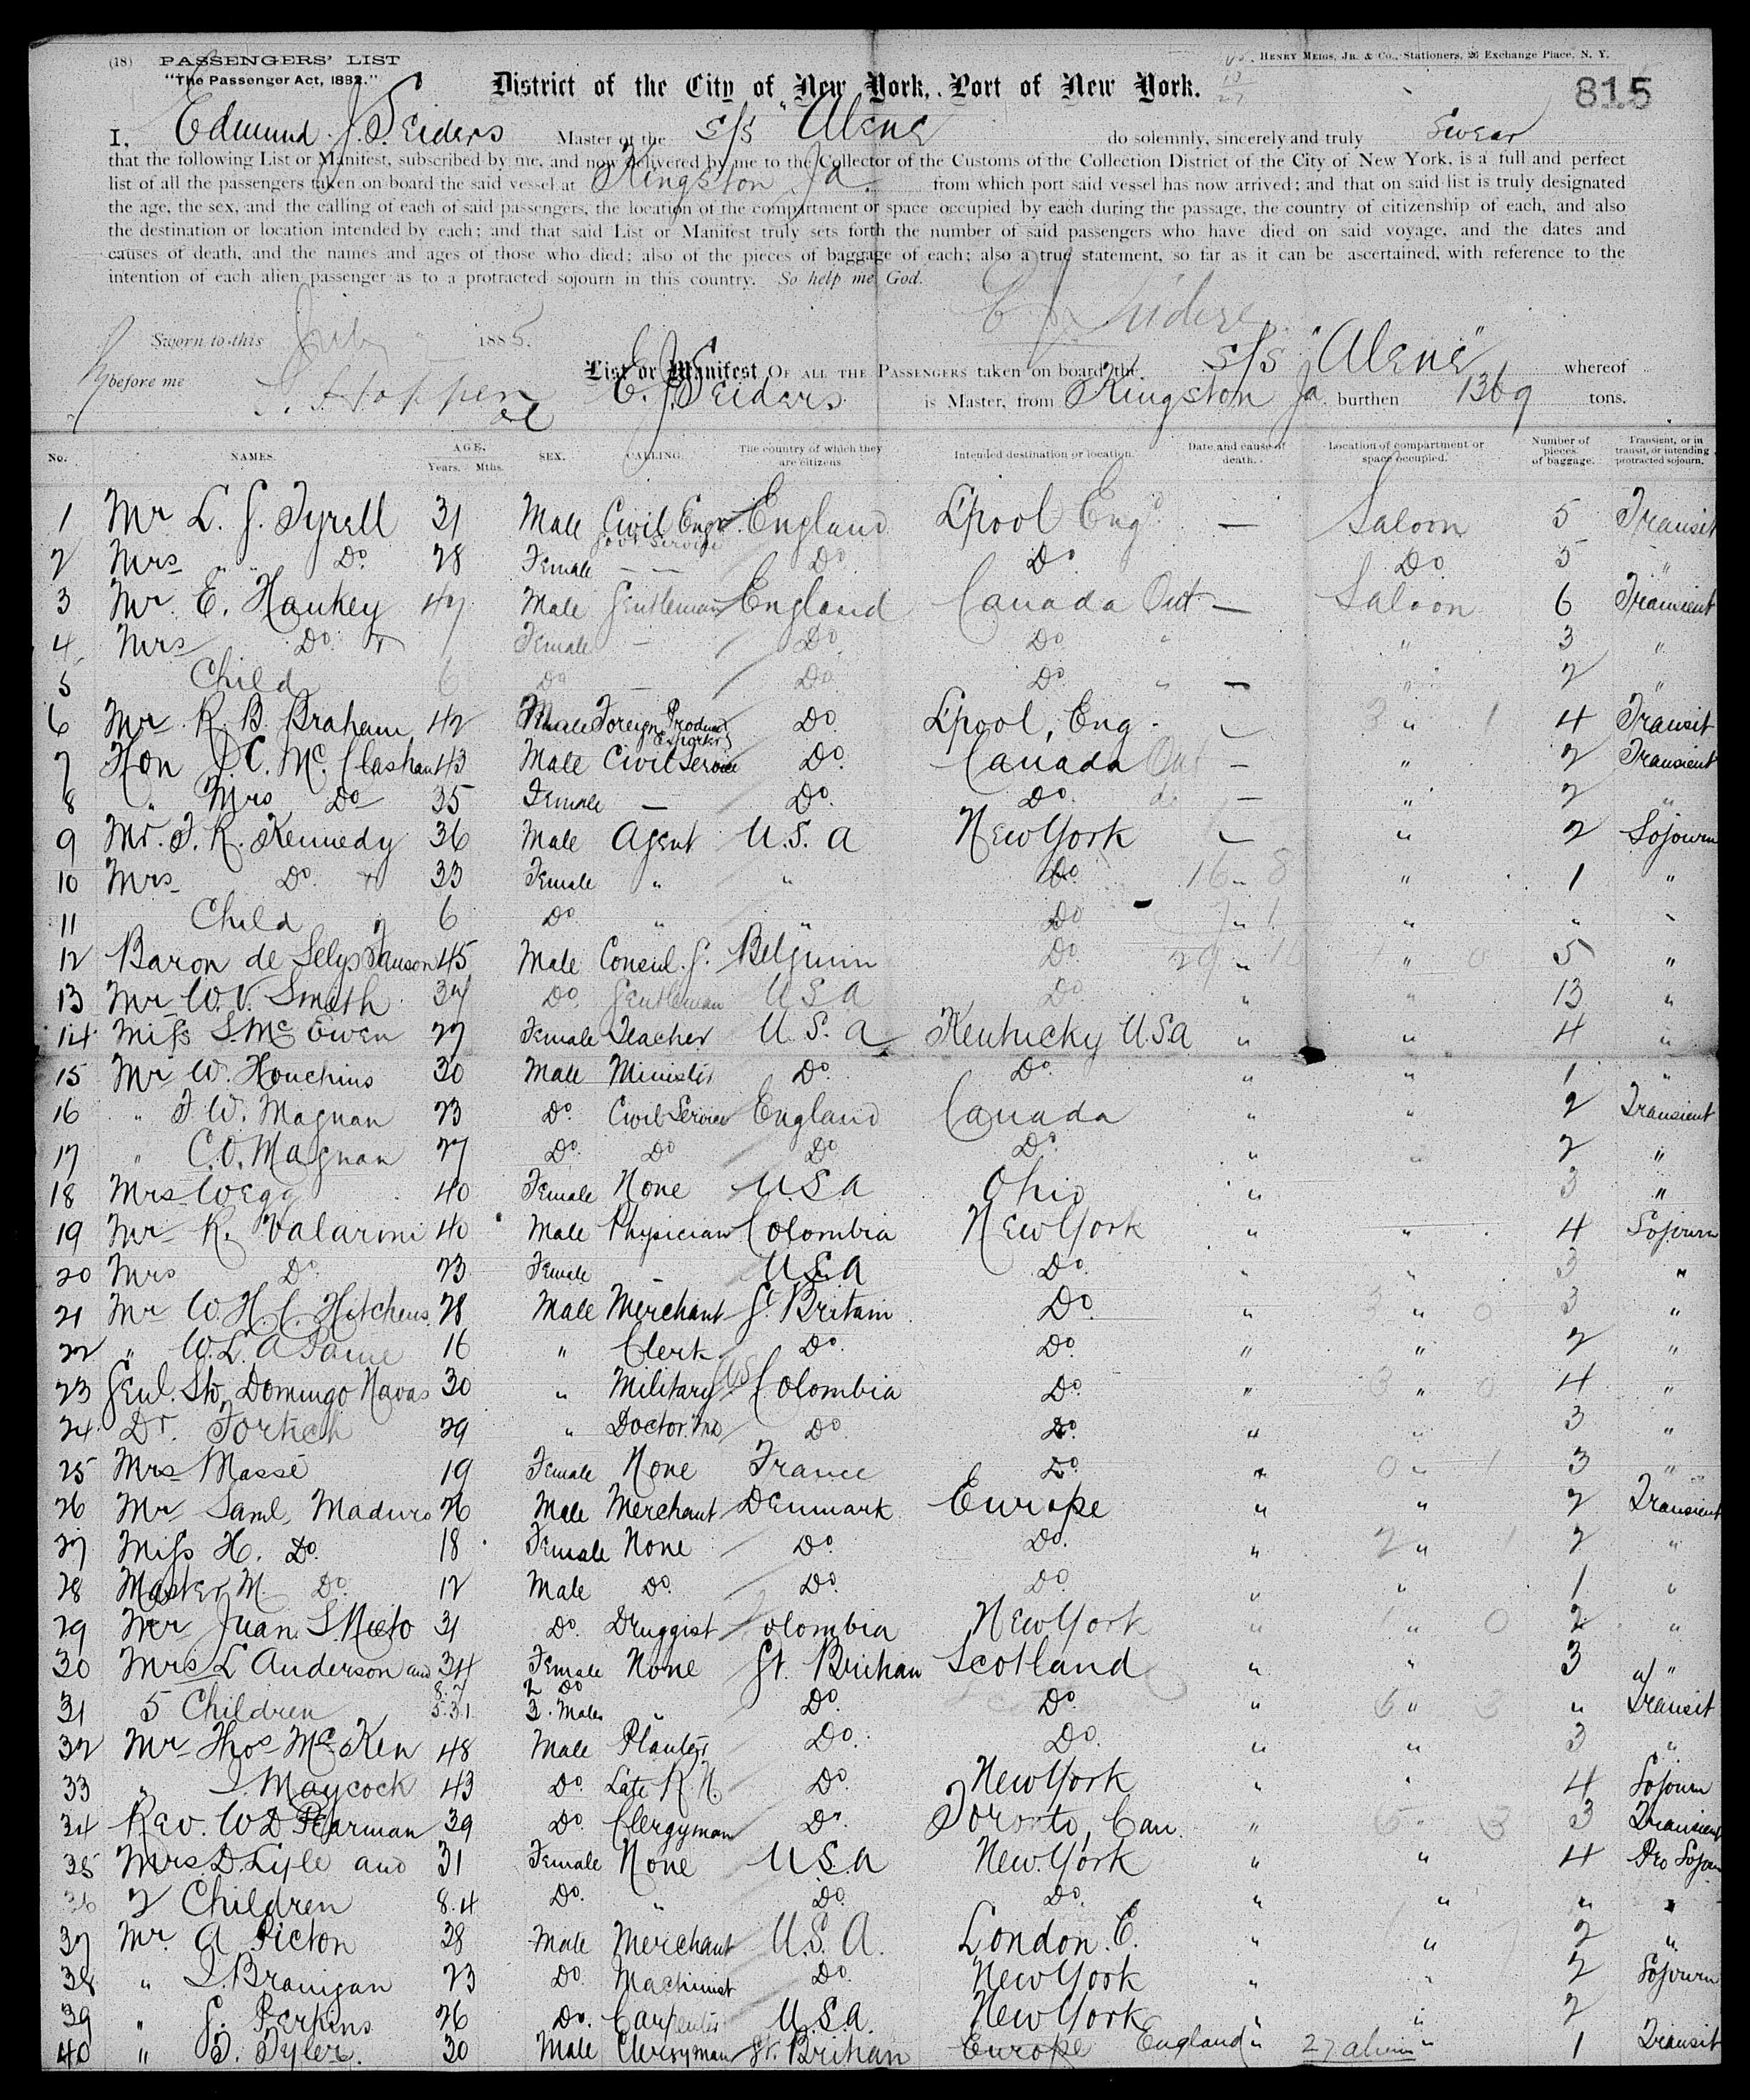 (18) PASSENGERS' LIST
HENRY MEIGS, JR. & CO., Stationers, 26 Exchange Place, N. Y.
"The Passenger Act, 1882."
District of the City of New York, Port of New York.
815
I, Edmund J. Seiders Master of the S/S "Alene" do solemnly, sincerely and truly Swear
that the following List or Manifest, subscribed by me, and now delivered by me to the Collector of the Customs of the Collection District of the City of New York, is a full and perfect
list of all the passengers taken on board the said vessel at Kingston Ja. from which port said vessel has now arrived; and that on said list is truly designated
the age, the sex, and the calling of each of said passengers, the location of the compartment or space occupied by each during the passage, the country of citizenship of each, and also
the destination or location intended by each; and that said List or Manifest truly sets forth the number of said passengers who have died on said voyage, and the dates and
causes of death, and the names and ages of those who died; also of the pieces of baggage of each; also a true statement, so far as it can be ascertained, with reference to the
intention of each alien passenger as to a protracted sojourn in this country. So help me God.
E J Seiders
Sworn to this July 1885.
before me Hopper
List or Manifest OF ALL THE PASSENGERS taken on board the S/S "Alene" whereof
E. J. Seiders is Master, from Kingston Ja. burthen 1369 tons.
No. NAMES. AGE. Years. Mths. SEX. CALLING. The country of which they are citizens Intended destination or location. Date and cause of death. Location of compartment or space occupied. Number of pieces of baggage. Transient, or in transit, or intending protracted sojourn.
1 Mr L. G. Tyrell 31 Male Civil Engr Govt Service England L'pool Engd — Saloon 5 Transit
2 Mrs " " Do 28 Female — — Do Do Do 5 "
3 Mr. E. Hankey 47 Male Gentleman England Canada Out — Saloon 6 Transient
4 Mrs Do Female — Do Do " " 3 "
5 Child 6 Do — Do Do " — " 2 "
6 Mr R. B. Braham 42 Male Foreign Produce Exporter Do L'pool, Eng. — " 4 Transit
7 Hon Mc. Clashan 43 Male Civil Service Do Canada Out — " 2 Transient
8 " Mrs Do 35 Female — Do Do do — " 2 "
9 Mr. F. R. Kennedy 36 Male Agent U.S.A New York — " 2 Sojourn
10 Mrs Do 33 Female " " Do 16 " 8 " 1 "
11 Child 6 Do " " Do " " " "
12 Baron de Selys Fanson 45 Male Consul. G. Belgium Do " " 5 "
13 Mr W. V. Smith 37 Do Gentleman U S A Do " " 13 "
14 Miss S. Mc Ewen 27 Female Teacher U.S.A Kentucky U.S.A " " 4 "
15 Mr W. Houchins 30 Male Minister Do Do " " 1 "
16 " F. W. Magnan 23 Do Civil Service England Canada " " 2 Transient
17 " C. O. Magnan 27 Do Do Do Do " " 2 "
18 Mrs Wegg 40 Female None U S A Ohio " 3 "
19 Mr R. Valarini 40 Male Physician Colombia New York " " 4 Sojourn
20 Mrs Do 23 Female — U.S.A Do " " 3 "
21 Mr W. H. C. Hitchens 28 Male Merchant Gt. Britain Do " " 3 "
22 " W. L. A Paine 16 " Clerk Do Do " " 2 "
23 Genl. Sto Domingo Navas 30 " Military Colombia Do " " 4 "
24 Dr. Fortich 29 " Doctor. Md Do Do " " 3 "
25 Mrs Massé 19 Female None France Do " " 3 "
26 Mr Saml. Maduro 26 Male Merchant Denmark Europe " " 2 Transient
27 Miss H. Do 18 Female None Do Do " " 2 "
28 Master M Do 12 Male Do Do Do " " 1 "
29 Mr Juan. S. Nieto 31 Do Druggist Colombia New York " " 2 "
30 Mrs L Anderson and 34 Female None Gt. Britian Scotland " " 3 "
31 5 Children 8.7 5.3.1 2 Do 3. Males " Do Do " " " Transit
32 Mr Thos Mc Ken 48 Male Planter Do Do " " 3 "
33 " Maycock 43 Do Late R. N. Do New York " " 4 Sojourn
34 Rev. W D Pearman 39 Do Clergyman Do Toronto, Can. " " 3 Transient
35 Mrs. D. Lyle and 31 Female None U.S.A New York " " 4 Pro Sojour
36 2 Children 8.4 Do " Do Do " " " "
37 Mr. A Picton 28 Male Merchant U.S.A. London. E. " " 2 "
38 " Branigan 23 Do Machinist Do New York " " 2 Sojourn
39 " G. Perkins 26 Do. Carpenter U.S.A. New York " " 2
40 " T. Tyler. 30 Male Clergyman Gt. Britian Europe England " 27 aliens " 1 Transit